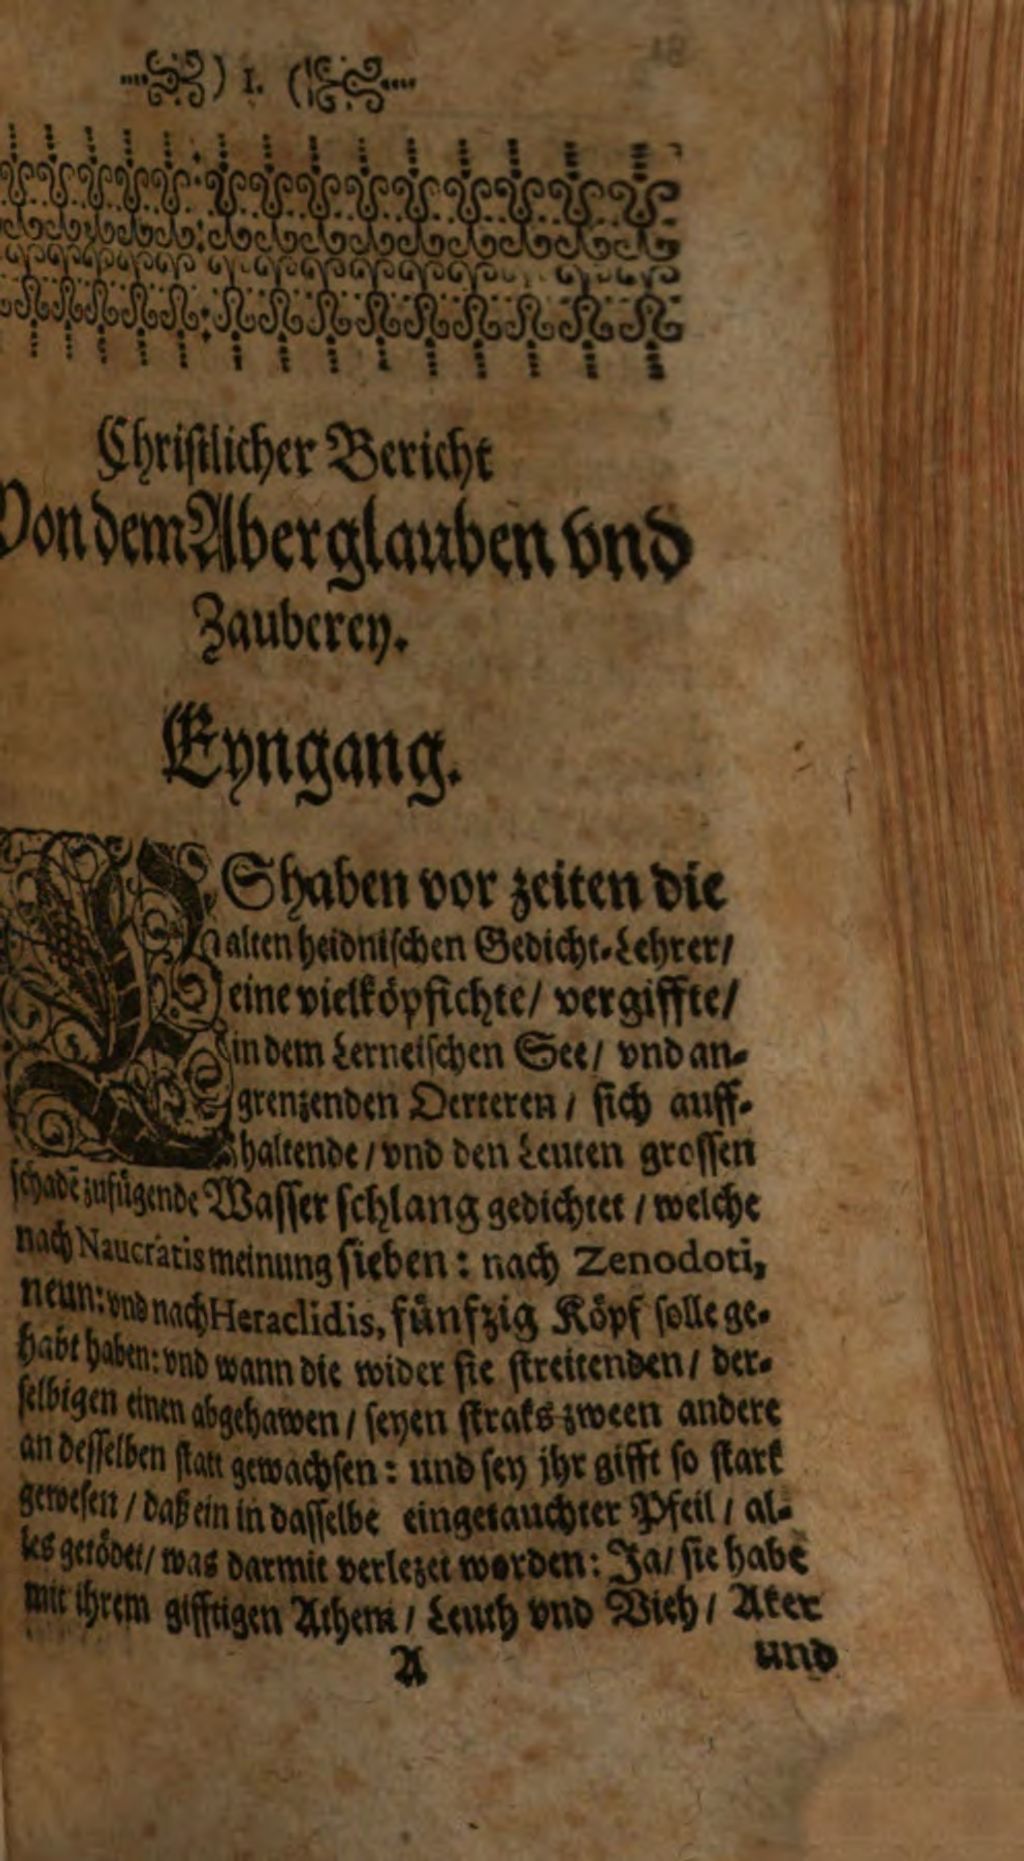 ) I. (
Christlicher Bericht
Von dem Aberglauben vnd
Zauberey.
Eyngang.
ES haben vor zeiten die
alten heidnischen Gedicht-Lehrer/
eine vielköpfichte/ vergiffte/
in dem Lerneischen See/ vnd an-
grenzenden Oerteren/ sich auff-
haltende/ vnd den Leuten grossen
schadē zufügende Wasser schlang gedichtet/ welche
nach Naucratis meinung sieben: nach Zenodoti,
neun: vnd nach Heraclidis, fünfzig Köpf solle ge-
habt haben: vnd wann die wider sie streitenden/ der-
selbigen einen abgehawen/ seyen straks zween andere
an desselben statt gewachsen: und sey jhr gifft so stark
gewesen/ daß ein in dasselbe eingetauchter Pfeil/ al-
les getödet/ was darmit verlezet worden: Ja/ sie habe
mit ihrem gifftigen Athem/ Leuth vnd Vieh/ Aker
A
und